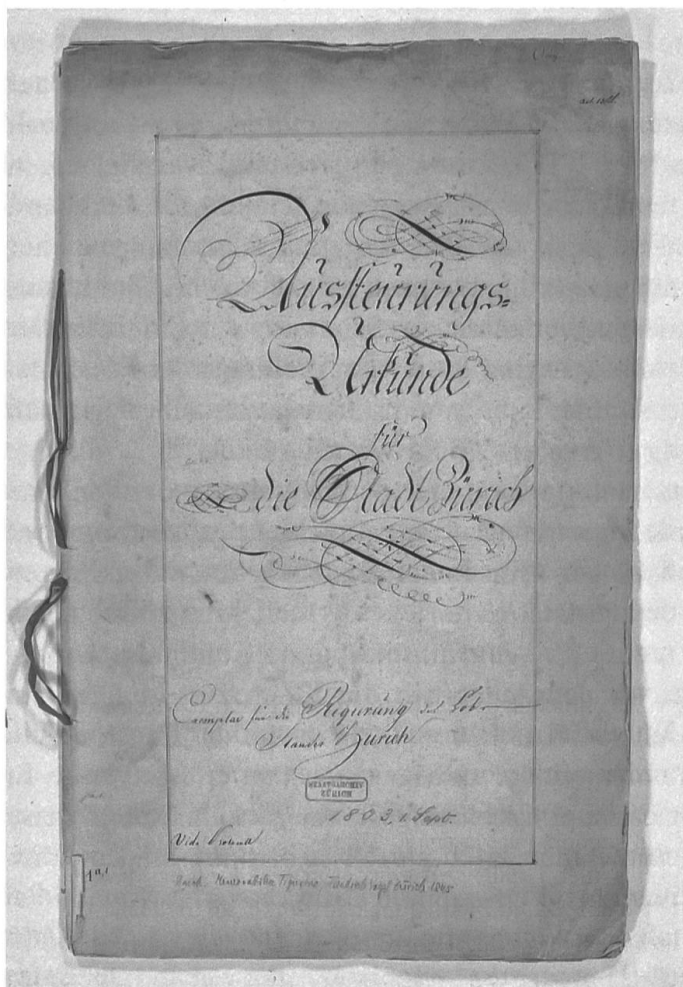 Aussteurungs=
Urkunde
für
die Stadt Zürich
Exemplar für die Regierung des Lob.
Standes Zürich
STAATSARCHIV
ZÜRICH
1803, 1. Sept.
Vide
Memorabilia Tigurina Friedrich Vogel Zürich 1845
1a,1